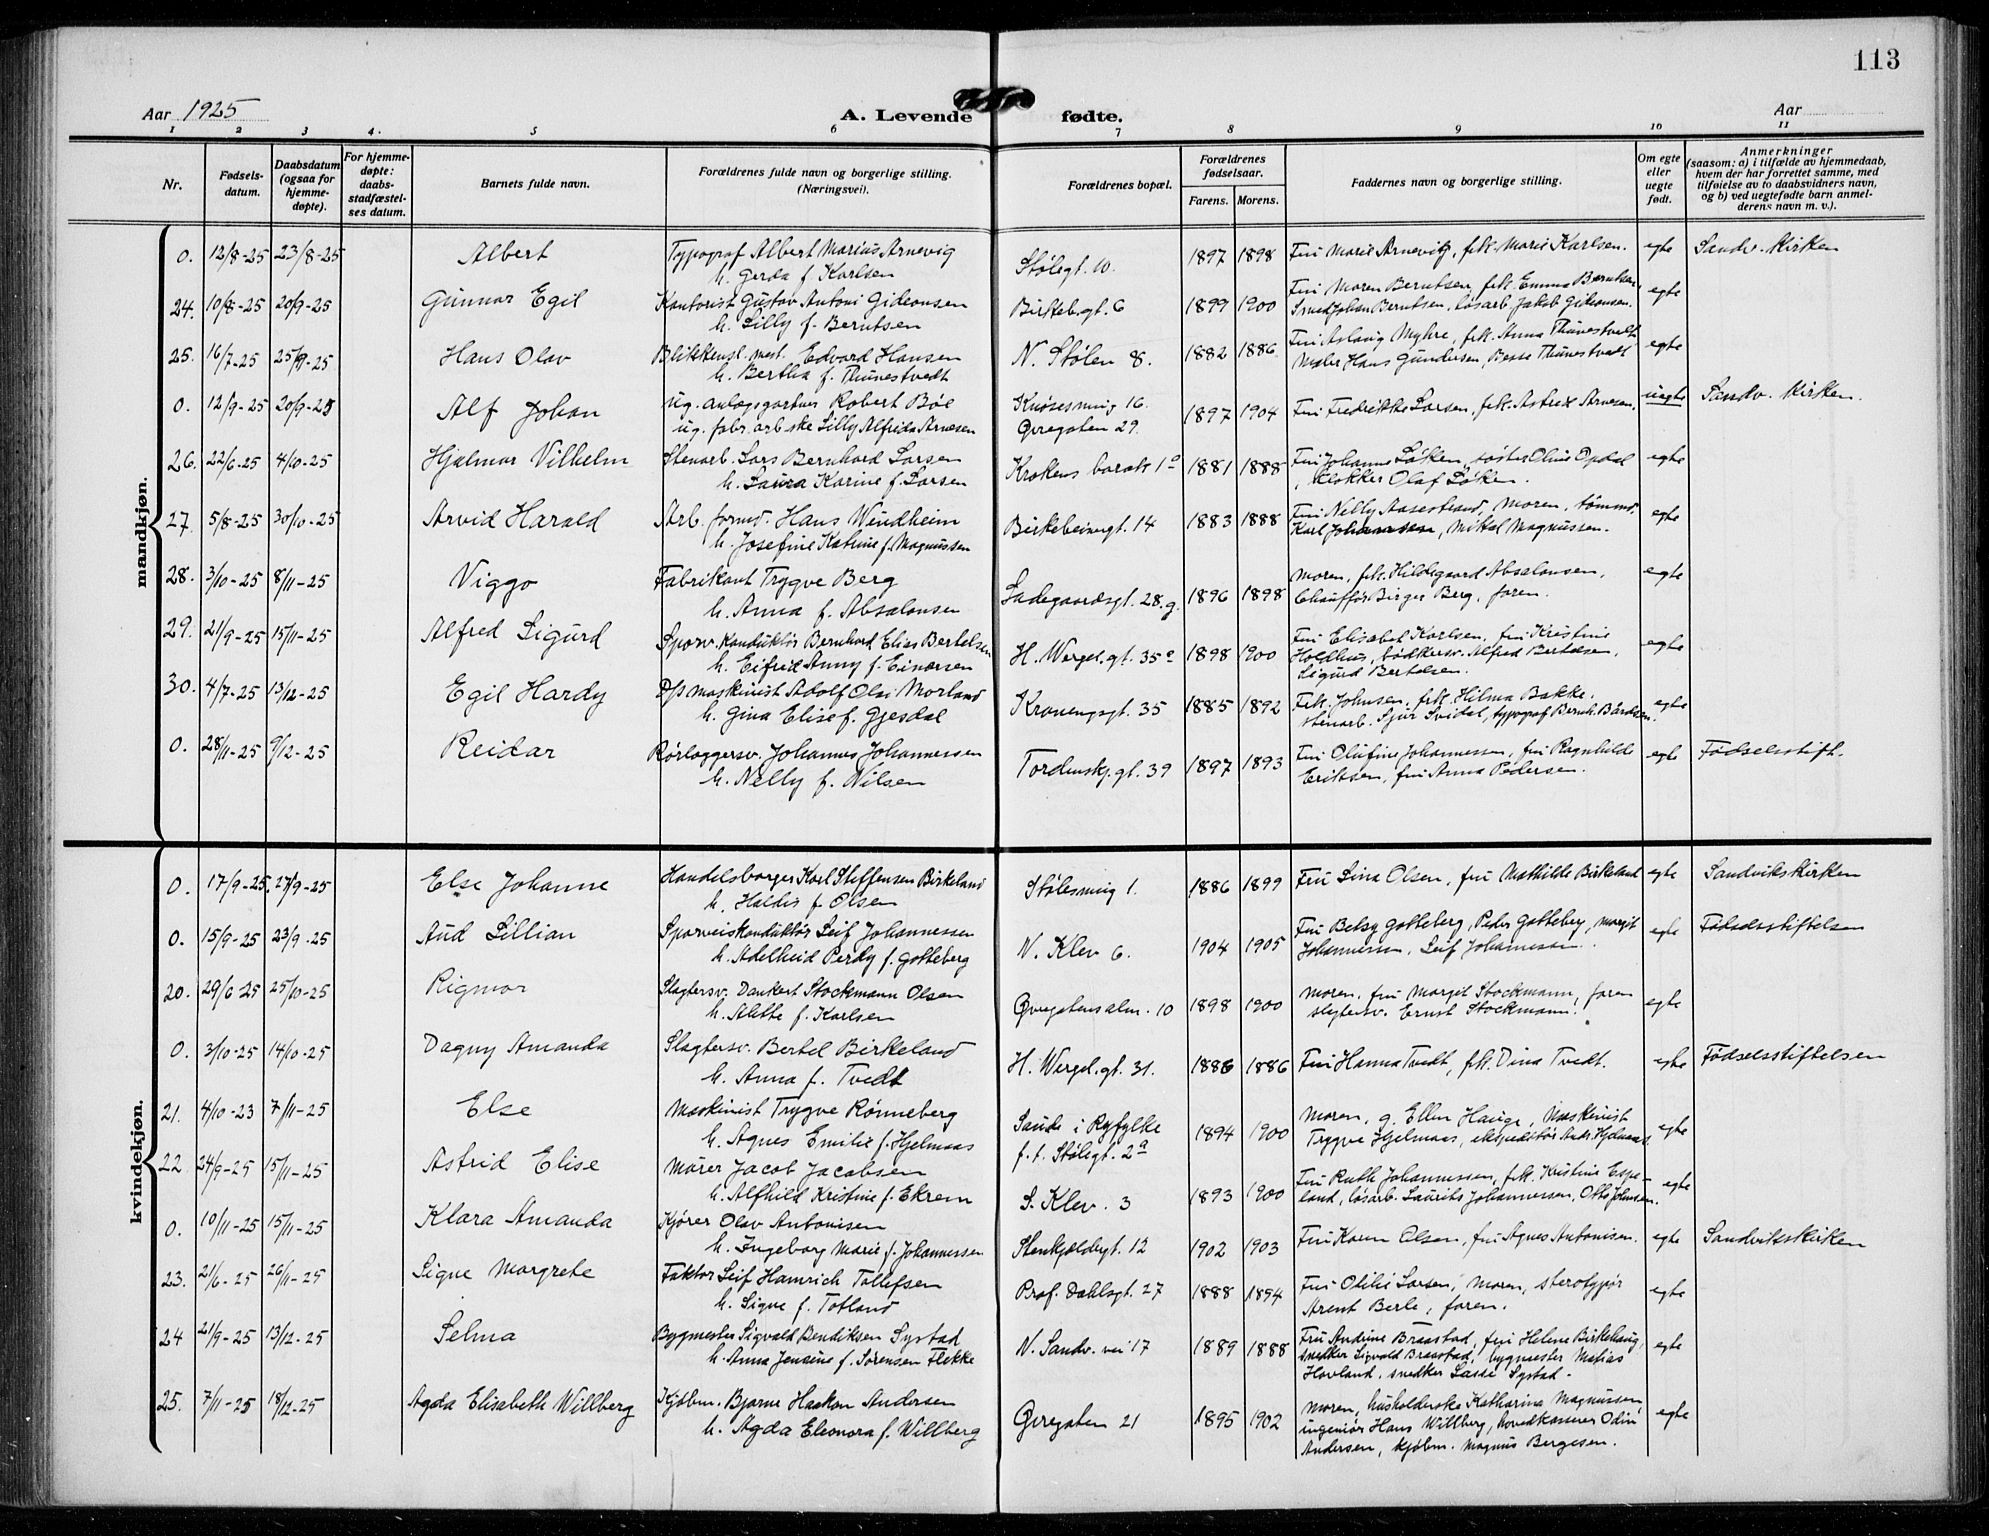 113
Aar 1925
A. Levende fødte.
Aar
1 2 3 4. 5 6 7 8 9 10 11
Nr.
Fødsels-
datum.
Daabsdatum
(ogsaa for
hjemme-
døpte).
For hjemme-
døpte:
daabs-
stadfæstel-
ses datum.
Barnets fulde navn.
Forældrenes fulde navn og borgerlige stilling.
(Næringsvei).
Forældrenes bopæl.
Forældrenes
fødselsaar.
Farens. Morens.
Faddernes navn og borgerlige stilling.
Om egte
eller
uegte
født.
Anmerkninger
(saasom: a) i tilfælde av hjemmedaab,
hvem der har forrettet samme, med
tilføielse av to daabsvidners navn,
og b) ved uegtefødte barn anmel-
derens navn m. v.).
mandkjøn.
0. 12/8-25 23/8-25 Albert Typograf Albert Marius Arnevig Stølegt. 10. 1897 1898 Fru Marie Arnevig, frk. Marie Karlsen. egte Sandv. Kirken
h. Gerda f. Karlsen
24. 10/8-25 20/9-25 Gunnar Egil Kontorist Gustav Antoni Gideonsen Birkeb.gt. 6 1899 1900 Fru Maren Berntsen, frk. Emma Berntsen, egte
h. Lilly f. Berntsen Smed Johan Berntsen, løsarb. Jakob Gideonsen.
25. 16/7-25 25/9-25 Hans Olav Blikkensl. mest. Edvard Hansen N. Stølen 8. 1882 1886 Fru Aslaug Myhre, frk. Anna Thunestvedt egte
h. Bertha f. Thunestvedt Maler Hans Gundersen, Besse Thunestvedt
0. 12/9-25 20/9-25 Alf Johan ug. anlægsgartner Robert Bøe Knøsesmug 16. 1897 1904 Fru Fredrikke Larsen, frk. Astrid Arnesen. uegte Sandv. Kirken.
ug. fabr. arb.ske Lilly Alfrida Arnesen Øvregaten 29.
26. 22/6-25 4/10-25 Hjalmar Vilhelm Stenarb. Lars Bernhard Larsen Krokens barak 1a 1881 1888 Fru Johanne Løken, søster Oline Opdal egte
h. Laura Karine f. Larsen , klokker Olaf Løken.
27. 5/8-25 30/10-25 Arvid Harald Arb. formd. Hans Windheim Birkebeinergt. 14 1883 1888 Fru Nelly Aasestrand, moren, tømmd. egte
h. Josefine Katrine f. Magnussen Karl Johannesen, Mikal Magnussen.
28. 3/10-25 8/11-25 Viggo Fabrikant Trygve Berg Ladegaardsgt. 28.g. 1896 1898 Moren, frk. Hildegaard Absalonsen, egte
h. Anna f. Absalonsen Chauffør Birger Berg, faren.
29. 21/9-25 15/11-25 Alfred Sigurd Sporv. Konduktør Bernhard Elias Bertelsen H. Wergel.gt. 35a 1898 1900 Fru Elisabet Karlsen, fru Kristine egte
h. Eifrid Anny f. Einarsen Holdhus, bødkersv. Alfred Bertelsen,
Sigurd Bertelsen.
30. 4/7-25 13/12-25 Egil Hardy D/s maskinist Adolf Olai Morland Kronengsgt. 35 1885 1892 Frk. Johnsen, frk. Hilma Bakke. egte
h. Gina Elise f. Gjesdal Stenarb. Sjur Svidal, typograf Bernh. Bårdsen.
0. 28/11-25 9/12-25 Reidar Rørlæggersv. Johannes Johannessen Tordenskj.gt. 39 1897 1893 Fru Olufine Johannessen, fru Ragnhilde egte Fødselsstift.
h. Nelly f. Nilsen Eriksen, fru Anna Pedersen.
kvindekjøn.
0. 17/9-25. 27/9-25 Else Johanne Handelsborger Karl Steffensen Birkeland Stølesmug 1. 1886 1899 Fru Lina Olsen, fru Mathilde Birkeland egte Sandvikskirken
h. Haldis f. Olsen
0. 15/9-25 23/9-25 Aud Lillian Sporveiskonduktør Leif Johannessen N. Klev 6. 1904 1905 Fru Betsy Gotteberg, Peder Gotteberg, Margit egte Fødselsstiftelsen
h. Adelheid Perdy f. Gotteberg Johannessen, Leif Johannessen.
20. 29/6-25 25/10-25 Rigmor Slagtersv. Dankert Stockmann Olsen Øvregatensalm. 10 1898 1900 Moren, fru Margit Stockmann, faren egte
h. Alette f. Karlsen slagtersv. Ernst Stockmann.
0. 3/10-25 14/10-25 Dagny Amanda Slagtersv. Bertel Birkeland H. Wergel.gt. 31. 1886 1886 Fru Hanna Tvedt, frk. Dina Tvedt. egte Fødselsstiftelsen
h. Anna f. Tvedt
21. 4/10-23 7/11-25 Else Maskinist Trygve Rønneberg Saude i Ryfylke 1894 1900 Moren, g. Ellen Hauge, maskinist egte
h. Agnes Emilie f. Hjelmaas f. t. Stølegt. 2a Trygve Hjelmaas, ekspeditør Andr. Hjelmaas.
22. 24/9-25 15/11-25 Astrid Elise Murer Jacob Jacobsen S. Klev. 3 1893 1900 Fru Ruth Johannessen, frk. Kristine Espe- egte
h. Alfhild Kristine f. Ekrem land, løsarb. Laurits Johannessen, Otto Johnsen.
0. 10/11-25 15/11-25 Klara Amanda Kjører Olav Antonisen Stenkjeldergt. 12 1902 1903 Fru Karen Olsen, fru Agnes Antonisen. egte Sandvikskirken
h. Ingeborg Marie f. Johannessen
23. 21/6-25 26/11-25 Signe Margrete Faktor Leif Hamrich Tollefsen Prof. Dahlsgt. 27 1888 1894 Fru Otilie Larsen, moren, sterotypør egte
h. Signe f. Totland Arent Berle, faren.
24 21/9-25 13/12-25 Selma Bygmester Sigvald Bendiksen Systad N. Sandv. vei 17 1889 1888 Fru Andrine Braastad, fru Helene Birkehaug, egte
h. Anna Jensine f. Sørensen Flekke snedker Sigvald Braastad, bygmester Matias
Hovland, snedker Lasse Systad.
25. 7/11-25 18/12-25 Agda Elisabeth Willberg Kjøbm. Bjarne Haakon Andersen Øvregaten 21 1895 1902 Moren, husholderske Katharina Magnussen, egte
h. Agda Eleonora f. Willberg ingeniør Hans Willberg, hovedkasserer Odin
Andersen, kjøbm. Magnus Bergesen.